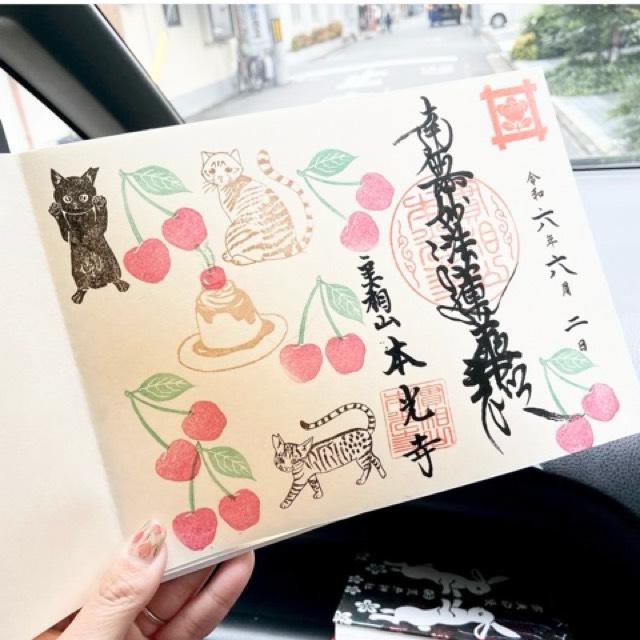 令和六年六月二日
南無妙法蓮華経
実相山 本光寺